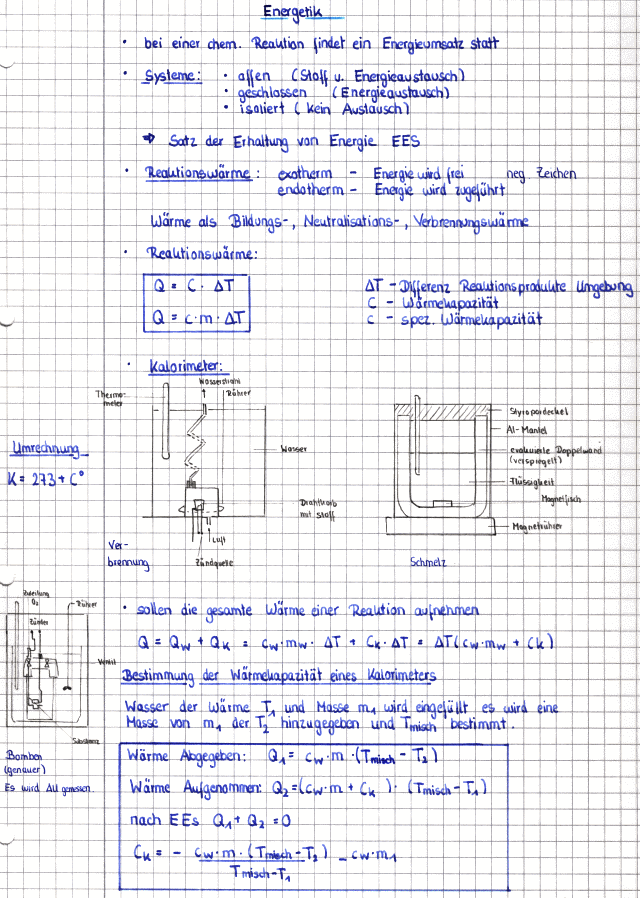 Energetik
• bei einer chem. Reaktion findet ein Energieumsatz statt
• Systeme: • offen (Stoff u. Energieaustausch)
• geschlossen (Energieaustausch)
• isoliert (kein Austausch)
⇒ Satz der Erhaltung von Energie EES
• Reaktionswärme: exotherm – Energie wird frei neg Zeichen
endotherm – Energie wird zugeführt
Wärme als Bildungs-, Neutralisations-, Verbrennungswärme
• Reaktionswärme:
Q = C · ΔT
Q = c·m·ΔT
ΔT – Differenz Reaktionsprodukte Umgebung
C – Wärmekapazität
c – spez. Wärmekapazität
• Kalorimeter:
Thermo-
meter
Wasserstrahl
Rührer
Wasser
Drahtkorb
mit Stoff
Luft
Zündquelle
Ver-
brennung
Styropordeckel
Al-Mantel
evakuierte Doppelwand
(verspiegelt)
Flüssigkeit
Magnetfisch
Magnetrührer
Schmelz
Umrechnung
K = 273 + C°
Zuleitung
O₂
Rührer
Zünder
Ventil
Substanz
Bomben
(genauer)
Es wird ΔU gemessen.
• sollen die gesamte Wärme einer Reaktion aufnehmen
Q = Qw + QK = cw·mw·ΔT + CK·ΔT = ΔT(cw·mw + CK)
Bestimmung der Wärmekapazität eines Kalorimeters
Wasser der Wärme T₁ und Masse m₁ wird eingefüllt es wird eine
Masse von m₁ der T₂ hinzugegeben und Tmisch bestimmt.
Wärme Abgegeben: Q₁ = cw·m·(Tmisch – T₂)
Wärme Aufgenommen: Q₂ = (cw·m + CK)·(Tmisch – T₁)
nach EEs Q₁ + Q₂ = 0
CK = – cw·m·(Tmisch – T₂) – cw·m₁
Tmisch – T₁